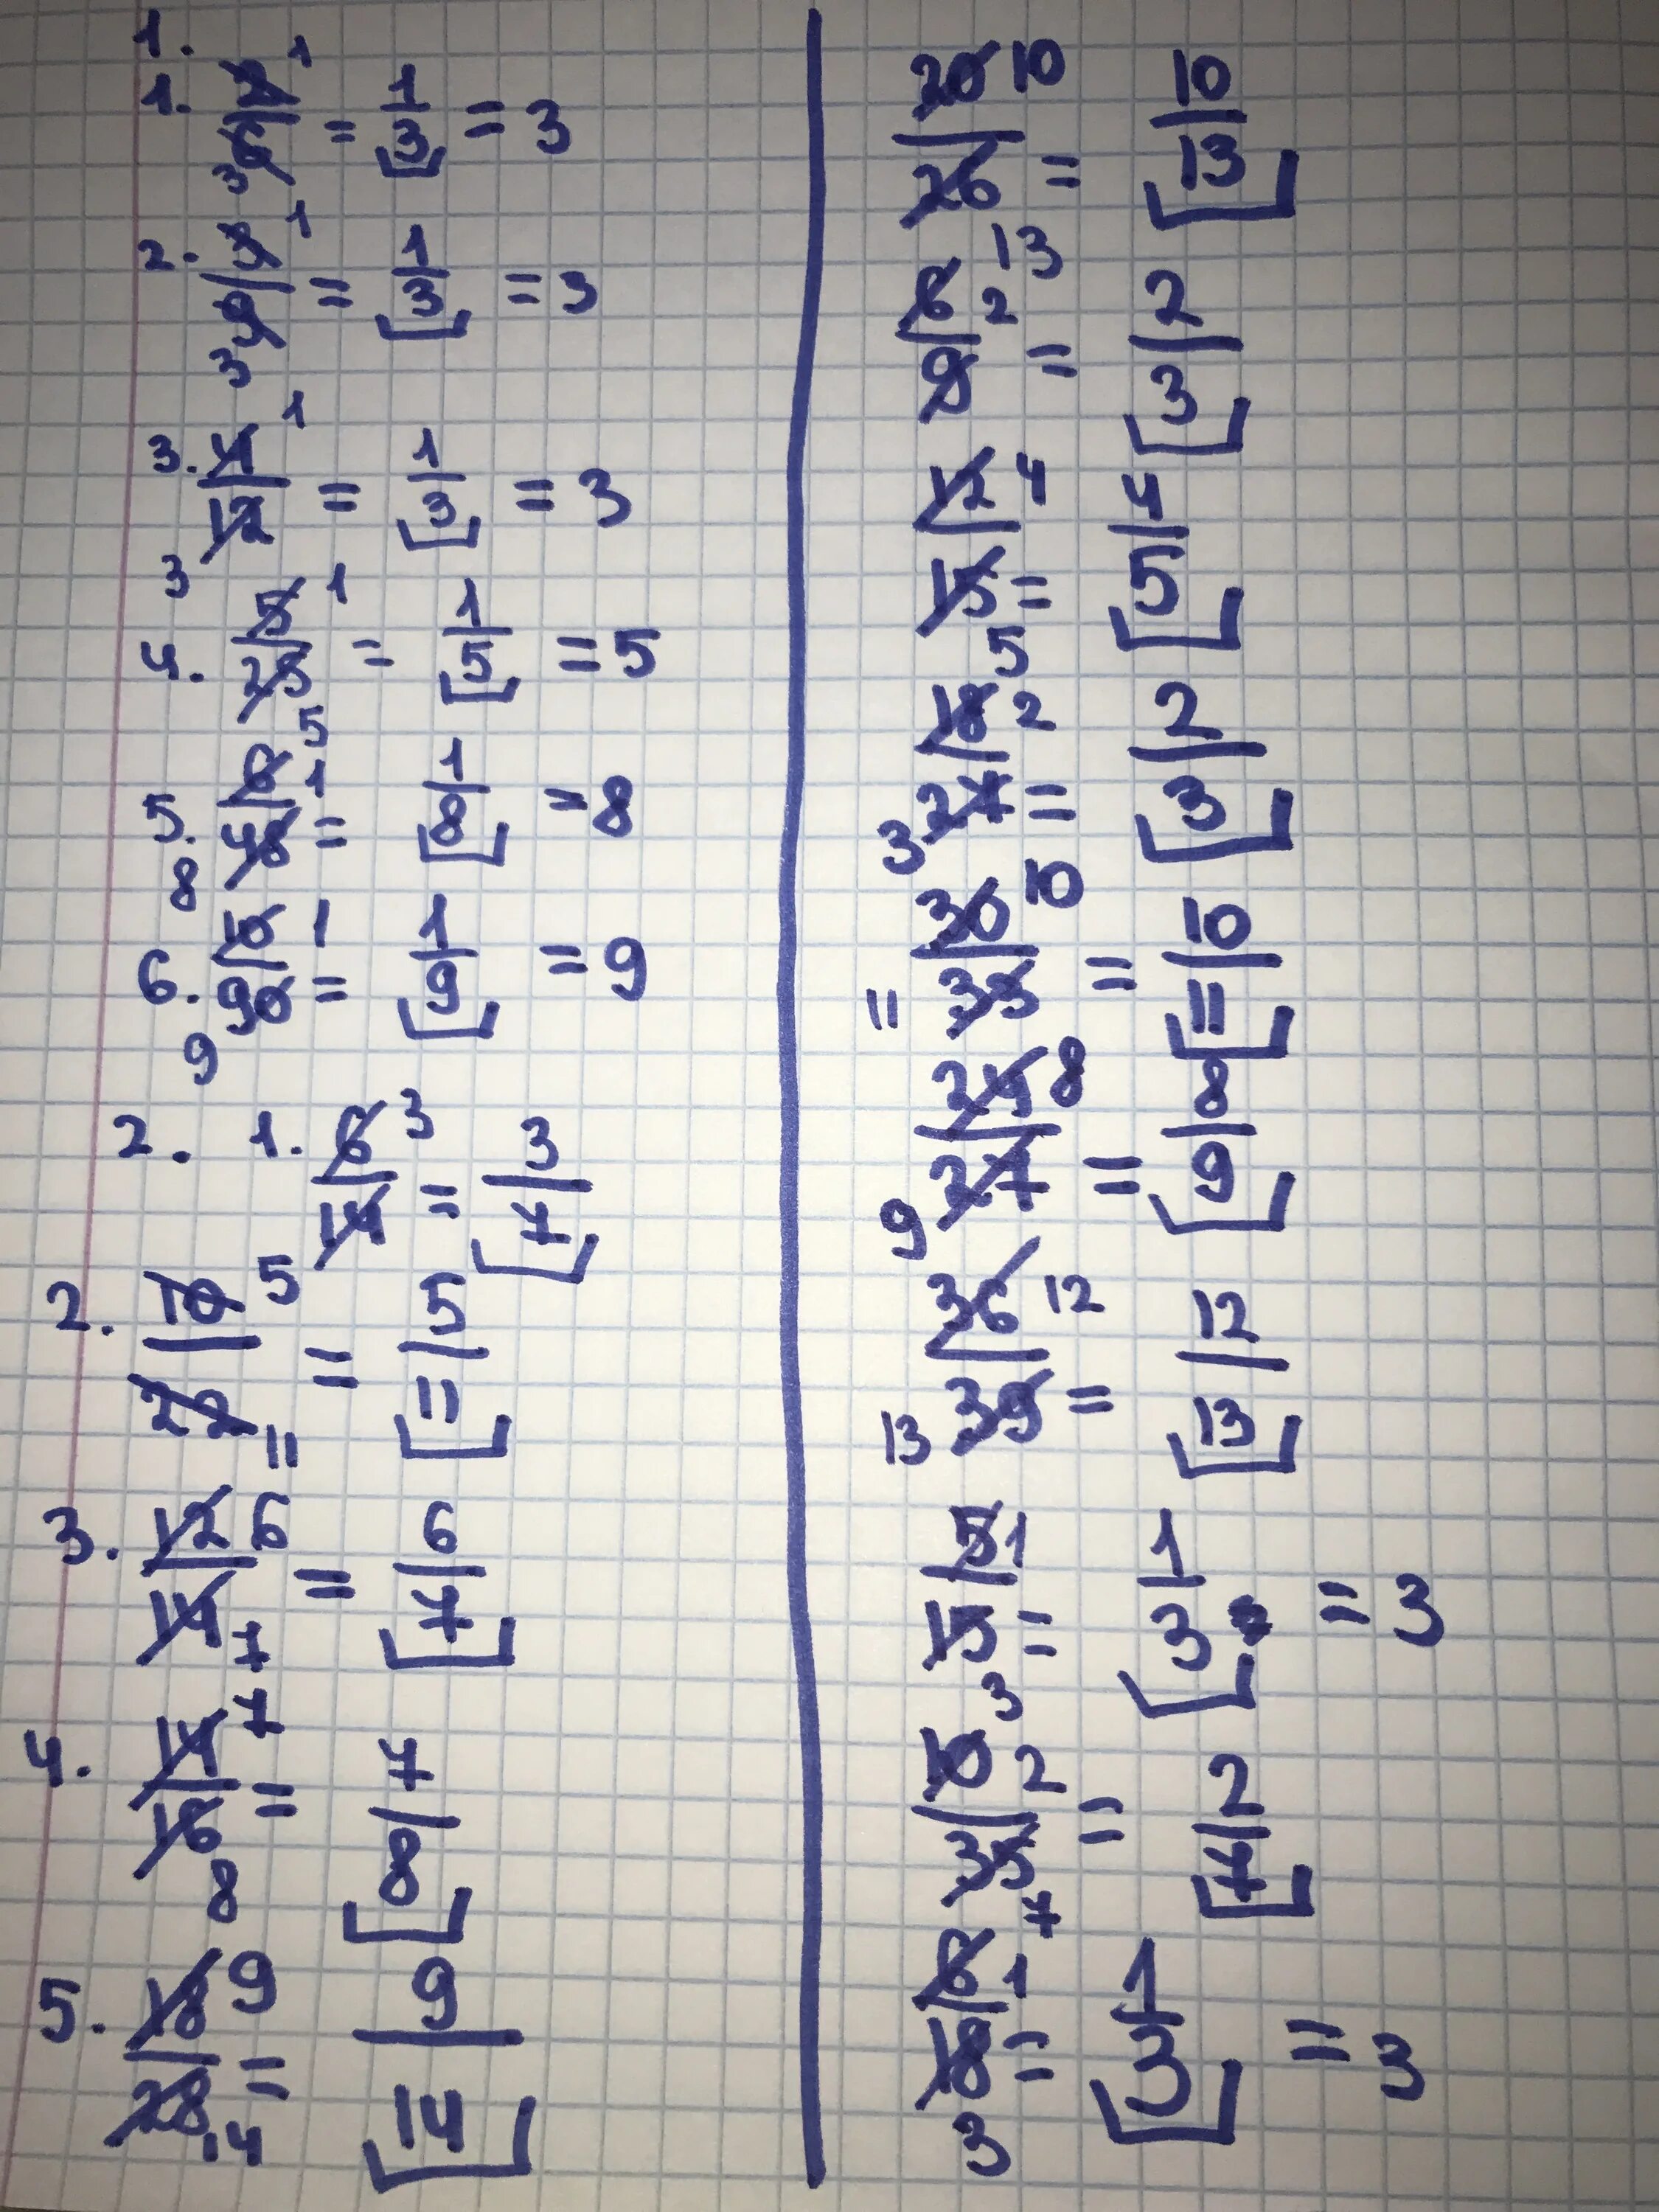 1.
1. 2/6 = 1/3 = 3
2. 3/9 = 1/3 = 3
3. 4/12 = 1/3 = 3
4. 5/25 = 1/5 = 5
5. 6/48 = 1/8 = 8
6. 10/90 = 1/9 = 9
2. 1. 6/14 = 3/7
2. 10/22 = 5/11
3. 12/14 = 6/7
4. 14/16 = 7/8
5. 18/28 = 9/14
20/26 = 10/13
6/9 = 2/3
12/15 = 4/5
18/27 = 2/3
30/33 = 10/11
24/27 = 8/9
36/39 = 12/13
5/15 = 1/3 = 3
10/35 = 2/7
6/18 = 1/3 = 3